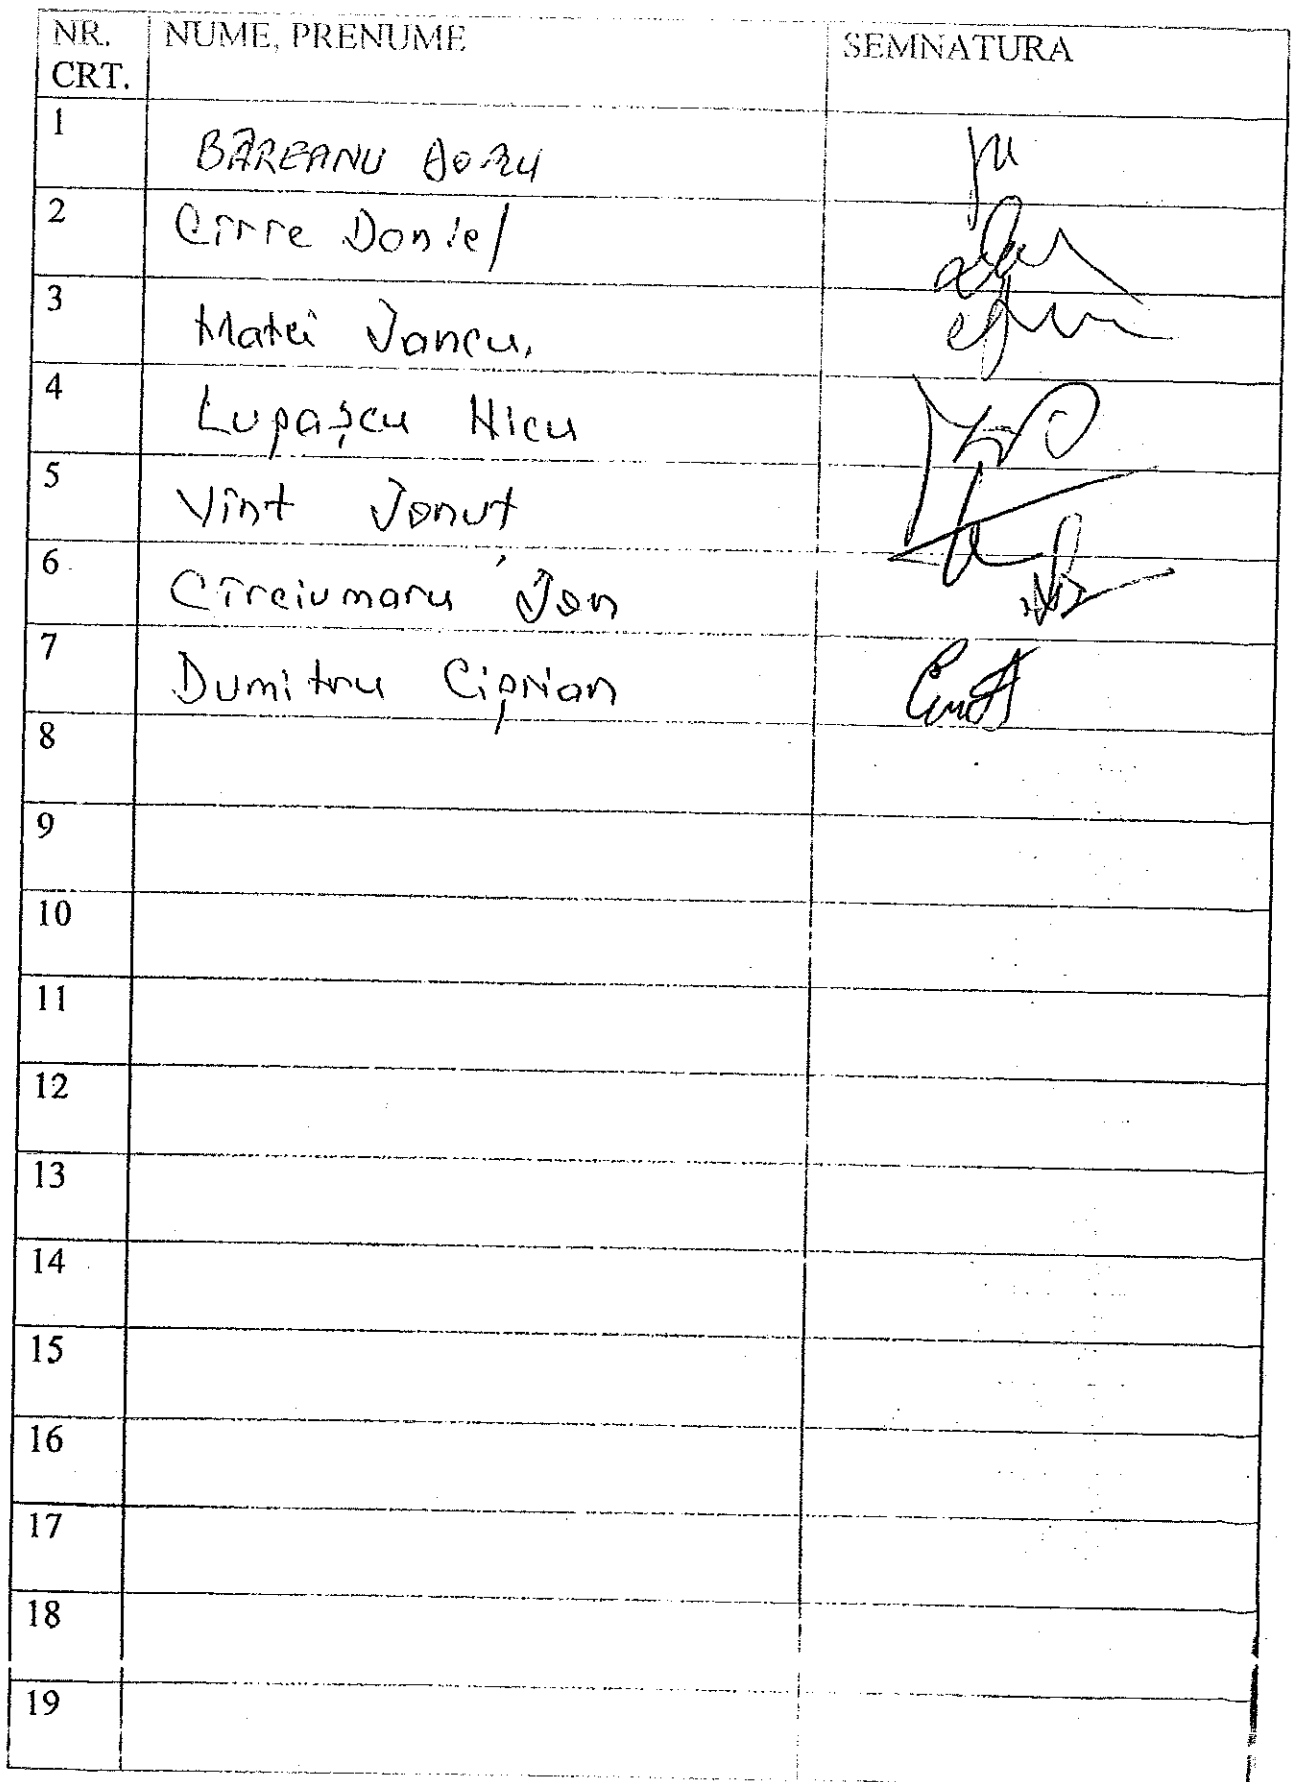 NR. CRT. NUME, PRENUME SEMNATURA
1 BĂREANU Doru
2 Cîrre Daniel
3 Matei Iancu.
4 Lupașcu Nicu
5 Vînt Ionuț
6 Cîrciumaru Ion
7 Dumitru Ciprian
8
9
10
11
12
13
14
15
16
17
18
19